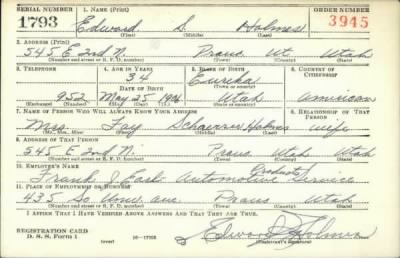 SERIAL NUMBER 1. NAME (Print) ORDER NUMBER
1793 Edward S. Holmes 3945
(First) (Middle) (Last)
2. ADDRESS (Print)
545 E 2nd N. Provo, Ut. Utah
(Number and street or R. F. D. number) (Town) (County) (State)
3. TELEPHONE 4. AGE IN YEARS 5. PLACE OF BIRTH 6. COUNTRY OF CITIZENSHIP
34 Eureka
DATE OF BIRTH
952 May 25 1906 Utah American
(Exchange) (Number) (Mo.) (Day) (Yr.) (State or country)
7. NAME OF PERSON WHO WILL ALWAYS KNOW YOUR ADDRESS 8. RELATIONSHIP OF THAT PERSON
Fay Holmes wife
(Mr., Mrs., Miss) (First) (Middle) (Last)
9. ADDRESS OF THAT PERSON
545 E 2nd N. Provo Utah Utah
(Number and street or R. F. D. number) (Town) (County) (State)
10. EMPLOYER'S NAME
Frank J Earl Automotive Products Service
11. PLACE OF EMPLOYMENT OR BUSINESS
435 So Univ. ave Provo Utah
(Number and street or R. F. D. number) (Town) (County) (State)
I AFFIRM THAT I HAVE VERIFIED ABOVE ANSWERS AND THAT THEY ARE TRUE.
REGISTRATION CARD
D. S. S. Form 1 (over) 16—17105 Edward S Holmes
(Registrant's signature)